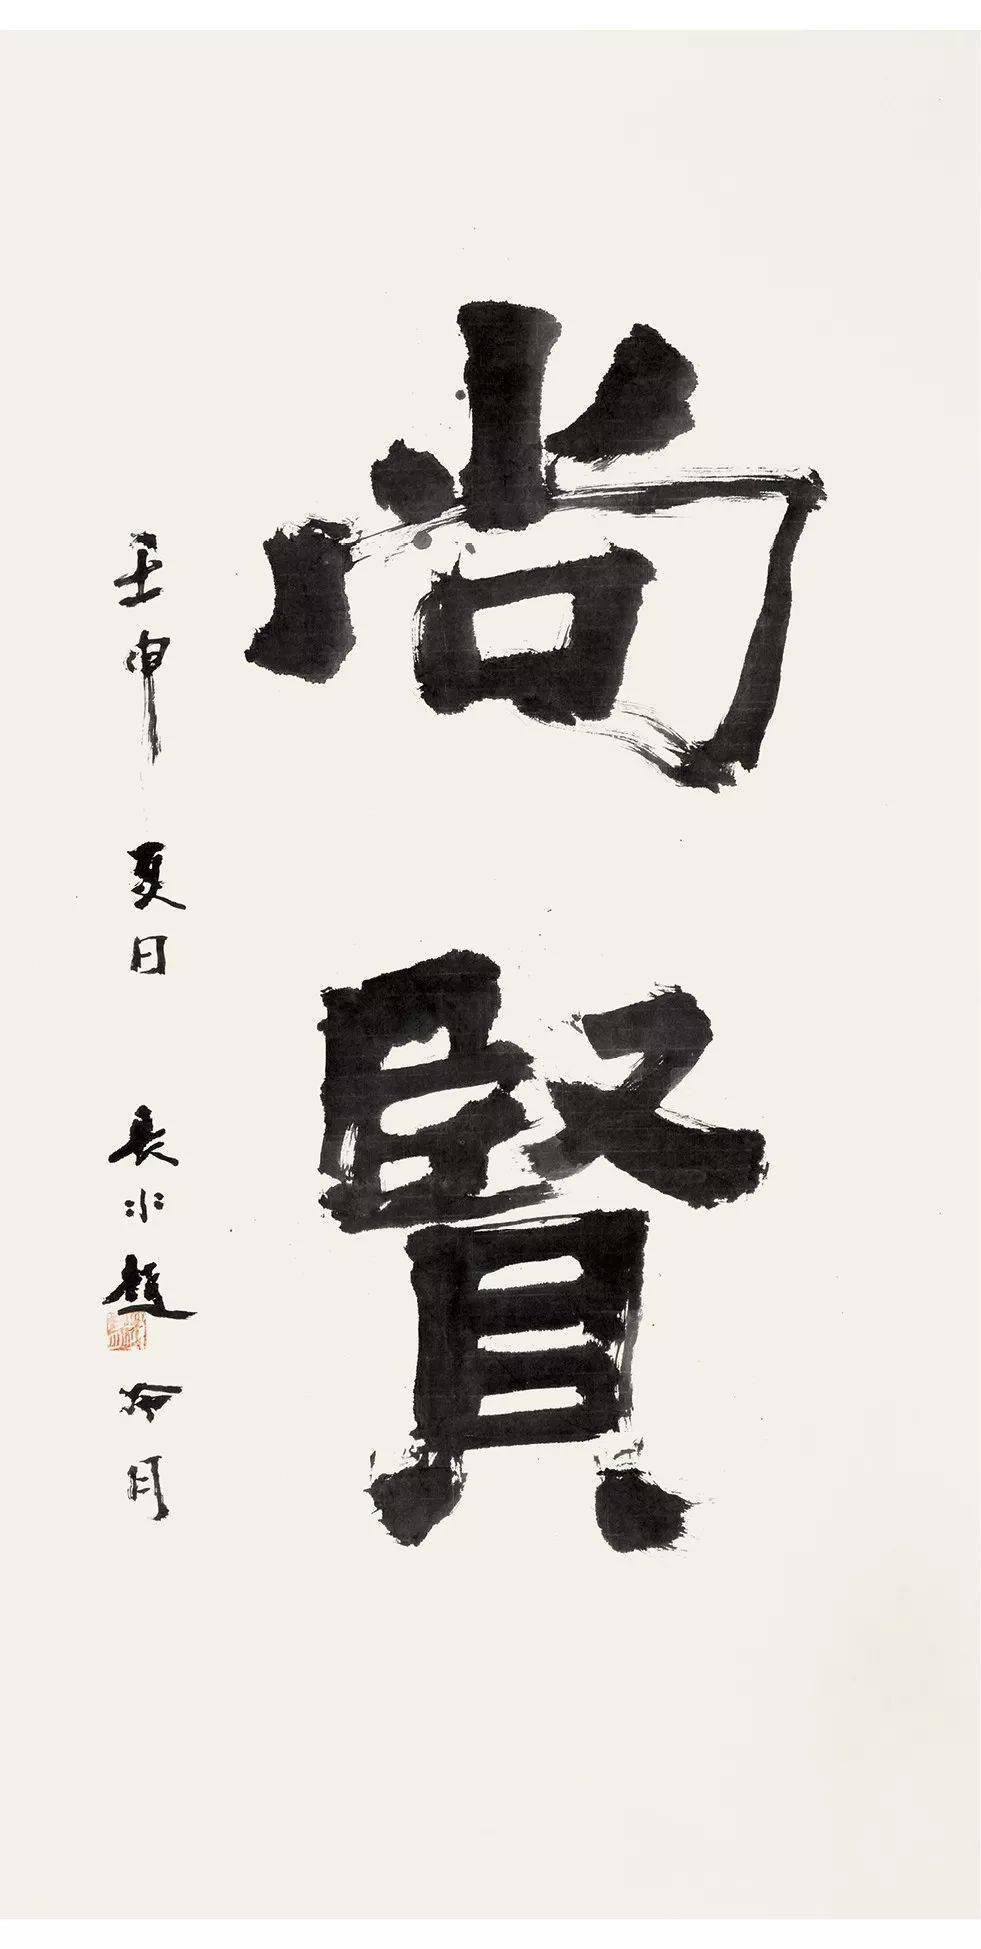 尚賢
壬申 夏日 長水 趙冷月